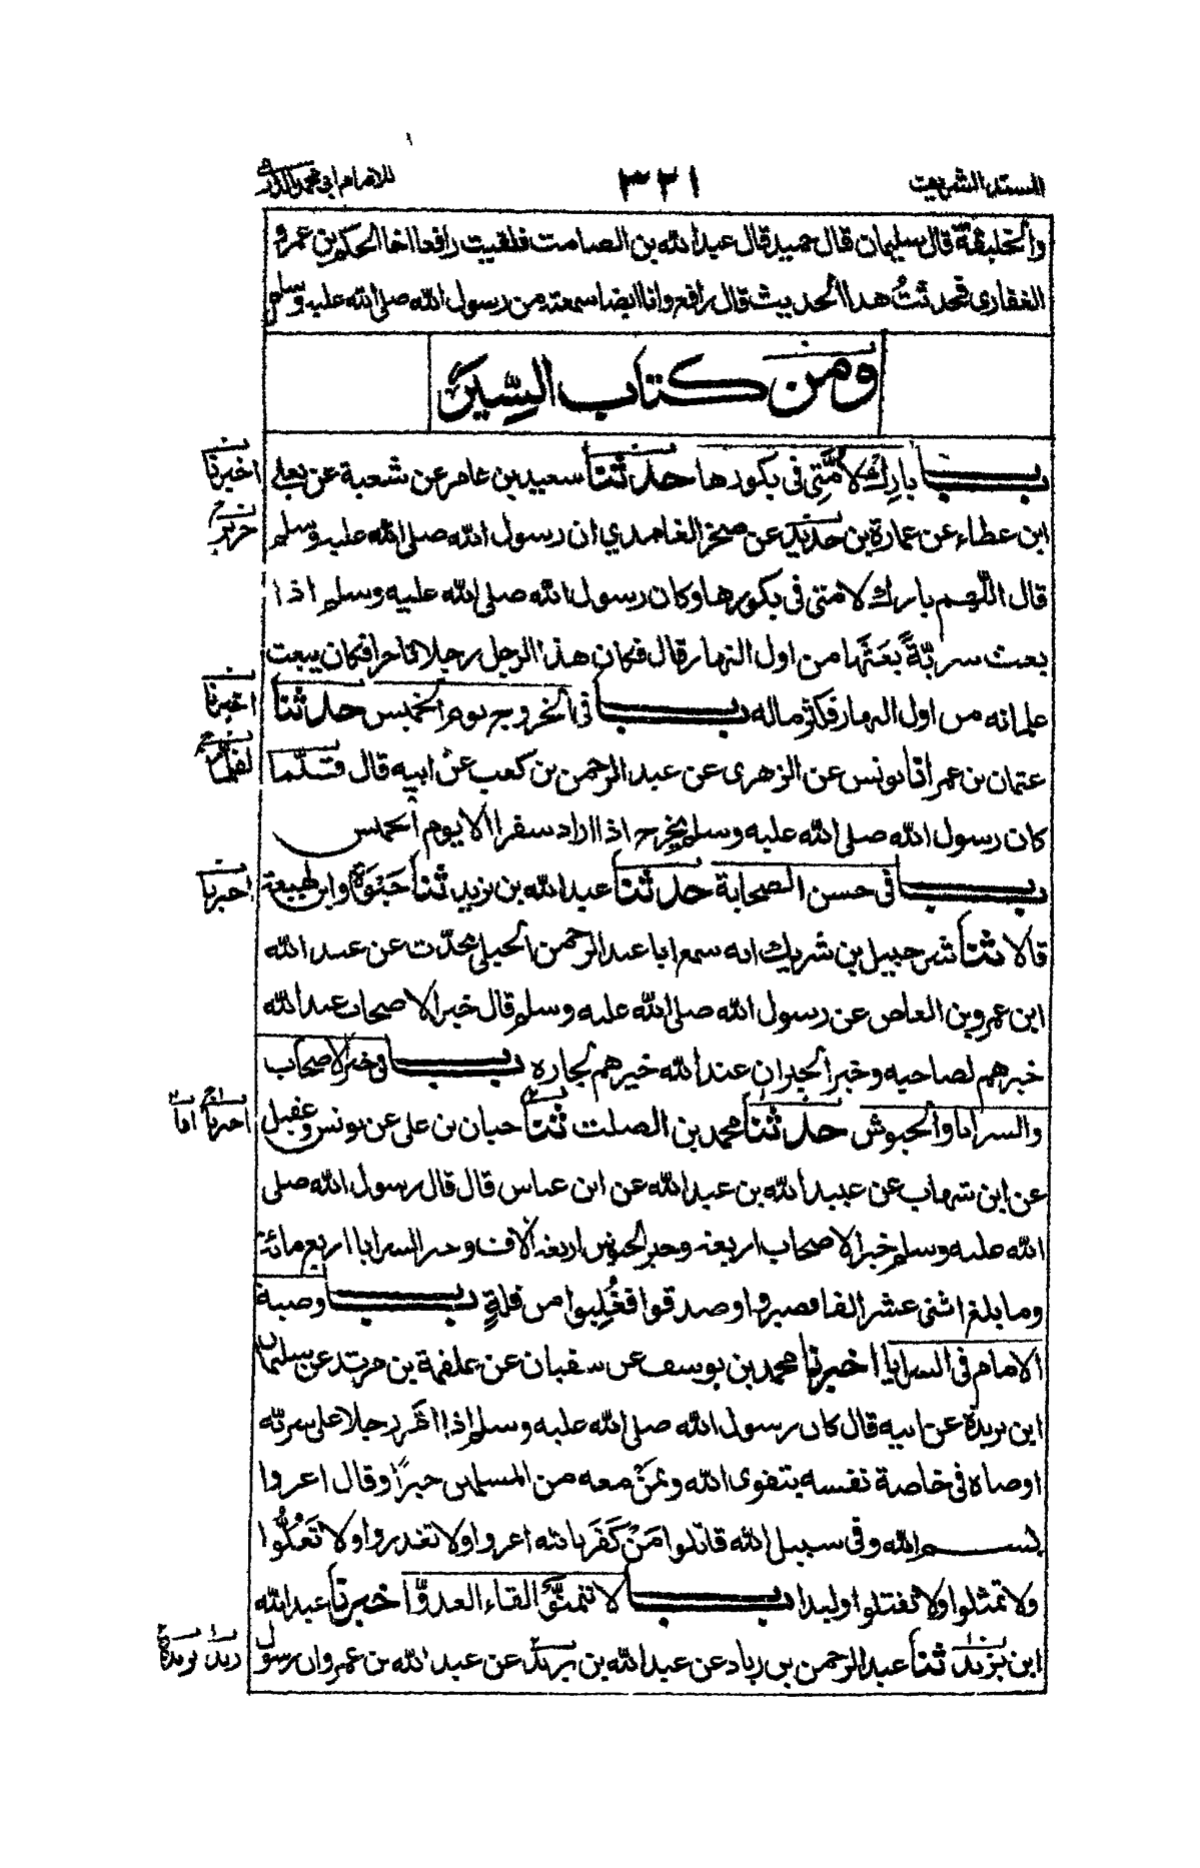 المسند الشريف ٣٢١ للامام ابي محمد الدارمي
والخليقة قال سليمان قال حميد قال عبد الله بن الصامت فلقيت رافعا اخا الحكم بن عمرو
الغفاري فحدثتُ هذا الحديث قال رافع وانا ايضا سمعته من رسول الله صلى الله عليه وسلم
ومن كتاب السِّيَر
بــاب بارِك لأُمَّتِي في بكورها حدثنا سعيد بن عامر عن شعبة عن يعلى
اخبرنا
ابن عطاء عن عمارة بن حديد عن صخر الغامدي ان رسول الله صلى الله عليه وسلم
قال اللّٰهم بارك لامتي في بكورها وكان رسول الله صلى الله عليه وسلم اذا
بعث سريّةً بعَثَها من اول النهار قال فكان هذا الرجل رجلا تاجرا فكان يبعث
غلمانه من اول النهار فكثر ماله بــاب في الخروج يوم الخميس حدثنا
اخبرنا
عثمان بن عمر انا يونس عن الزهري عن عبد الرحمن بن كعب عن ابيه قال قتلّما
لقلّما
كان رسول الله صلى الله عليه وسلم يخرج اذا اراد سفرا الا يوم الخميس
بــاب في حسن الصحابة حدثنا عبد الله بن يزيد ثنا حَيْوَة وابن لهيعة
اخبرنا
قالا ثنا شرحبيل بن شريك انه سمع ابا عبد الرحمن الحبلي يحدّث عن عبد الله
ابن عمرو بن العاص عن رسول الله صلى الله عليه وسلم قال خير الاصحاب عند الله
خيرهم لصاحبه وخير الجيران عند الله خيرهم لجاره بــاب في خير الاصحاب
والسرايا والجيوش حدثنا محمد بن الصلت ثنا حبان بن علي عن يونس وعقيل
اخبرنا انا
عن ابن شهاب عن عبيد الله بن عبد الله عن ابن عباس قال قال رسول الله صلى
الله عليه وسلم خير الاصحاب اربعة وخير الجيوش اربعة الاف وخير السرايا اربع مائة
وما بلغ اثني عشر الفا فصبروا وصدقوا فغُلِبوا من قلةٍ بــاب وصية
الامام في السرايا اخبرنا محمد بن يوسف عن سفيان عن علقمة بن مرثد عن سليمان
ابن بريدة عن ابيه قال كان رسول الله صلى الله عليه وسلم اذا امّر رجلا على سرية
اوصاه في خاصة نفسه بتقوى الله وبمَنْ معه من المسلمين خيرًا وقال اغزوا
بسم الله وفي سبيل الله قاتلوا مَنْ كَفَر بالله اغزوا ولا تغدروا ولا تَغُلُّوا
ولا تمثلوا ولا تقتلوا وليدا بــاب لا تتمنَّوْا لقاء العدوّ اخبرنا عبد الله
ابن يزيد ثنا عبد الرحمن بن زياد عن عبد الله بن يزيد عن عبد الله بن عمرو ان رسول